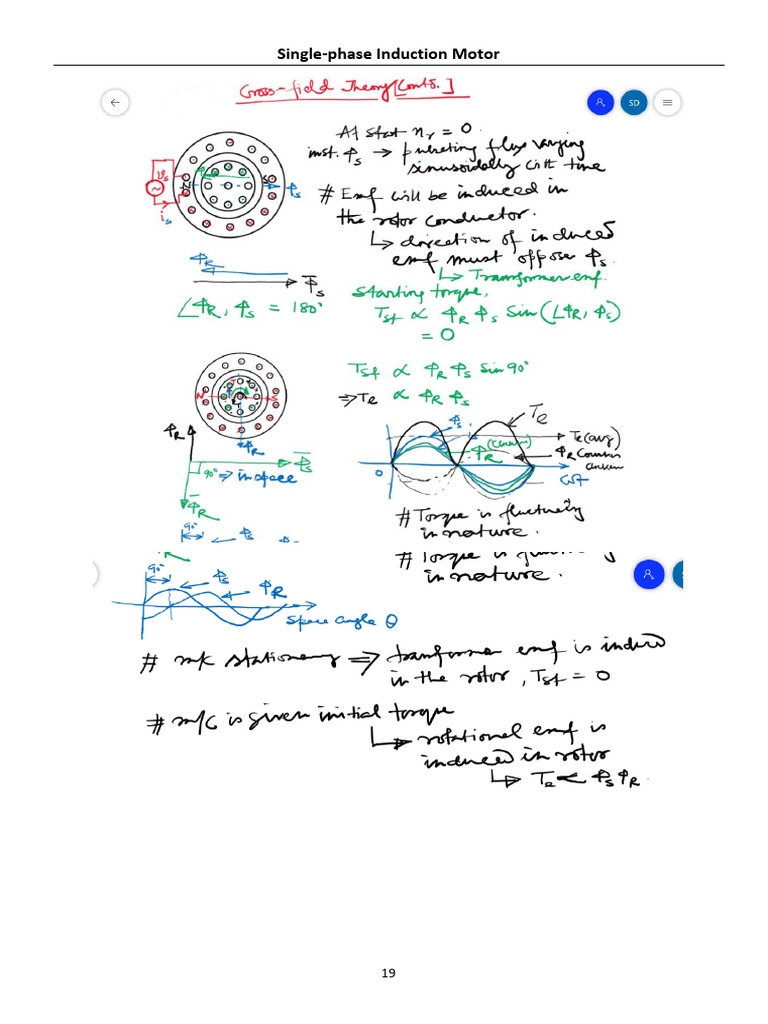 Single-phase Induction Motor
Cross-field Theory [Contd.]
SD
At start nr = 0.
inst. Φs → pulsating flux varying
sinusoidally with time
# Emf will be induced in
the rotor conductor.
↳ direction of induced
emf must oppose Φs.
↳ Transformer emf.
vs
is
N
S
Φs
ΦR
Φ̄s
∠ΦR, Φs = 180°
Starting torque,
Tst ∝ ΦR Φs Sin(∠ΦR, Φs)
= 0
Tst ∝ ΦR Φs Sin 90°
⇒ Te ∝ ΦR Φs
N
S
ΦR
ΦR
90° ⇒ in space
Φ̄s
Φ̄R
Φs
Te
Te(avg)
ΦR
0
ωt
# Torque is fluctuating
in nature.
90°
Φs
# Torque is
in nature.
90°
Φs
ΦR
Space angle θ
# m/c stationary ⇒ transformer emf is induced
in the rotor, Tst = 0
# m/c is given initial torque
↳ rotational emf is
induced in rotor
↳ Te ∝ Φs ΦR.
19